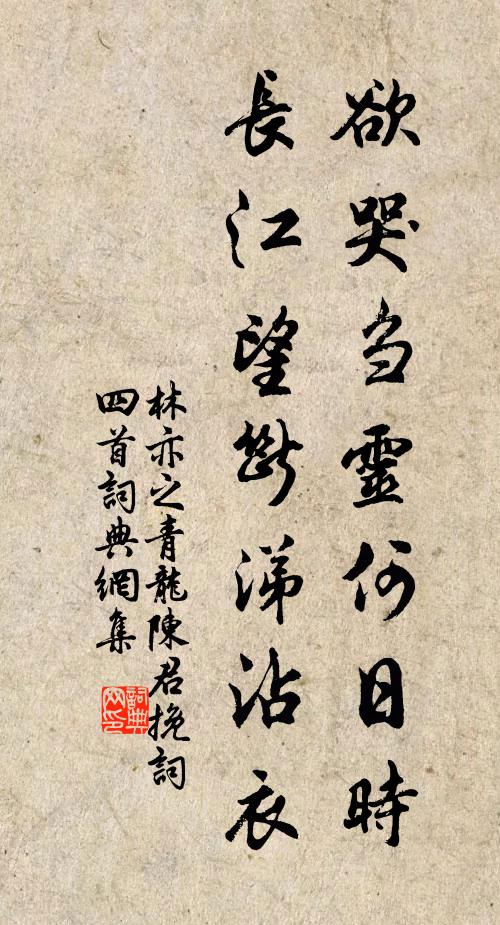 欲哭刍靈何日時
長江望斷涕沾衣
林亦之青龍陳君挽詞
四首詞典網集
詞典
网印